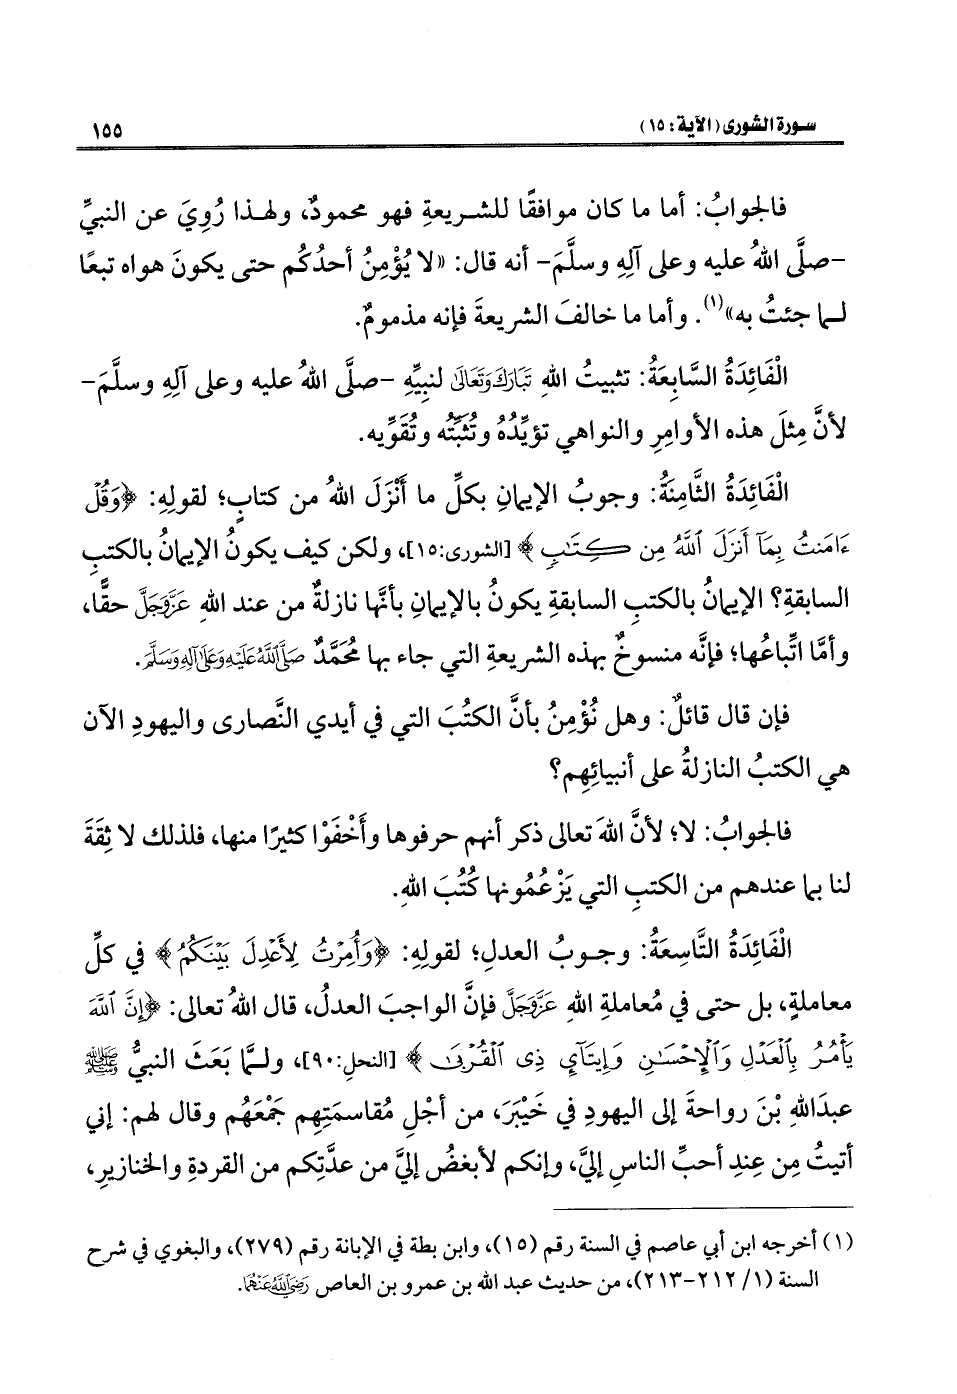 سورة الشورى (الآية: ١٥)
١٥٥
فالجوابُ: أما ما كان موافقًا للشريعةِ فهو محمودٌ، ولهذا رُوِيَ عن النبيِّ
-صلَّى اللهُ عليه وعلى آلِهِ وسلَّمَ- أنه قال: «لا يُؤْمِنُ أحدُكُم حتى يكونَ هواه تبعًا
لما جئتُ به»(١). وأما ما خالفَ الشريعةَ فإنه مذمومٌ.
الْفَائِدَةُ السَّابِعَةُ: تثبيتُ اللهِ تَبَارَكَ وَتَعَالَى لنبيِّهِ -صلَّى اللهُ عليه وعلى آلِهِ وسلَّمَ-
لأنَّ مِثلَ هذه الأوامِرِ والنواهي تؤيِّدُهُ وتُثبِّتُه وتُقَوِّيه.
الْفَائِدَةُ الثَّامِنَةُ: وجوبُ الإيمانِ بكلِّ ما أَنْزَلَ اللهُ من كتابٍ؛ لقولِهِ: ﴿وَقُلْ
ءَامَنتُ بِمَآ أَنزَلَ ٱللَّهُ مِن كِتَٰبٍ﴾ [الشورى:١٥]، ولكن كيف يكونُ الإيمانُ بالكتبِ
السابقةِ؟ الإيمانُ بالكتبِ السابقةِ يكونُ بالإيمانِ بأنَّها نازلةٌ من عند اللهِ عَزَّوَجَلَّ حقًّا،
وأمَّا اتِّباعُها؛ فإنَّه منسوخٌ بهذه الشريعةِ التي جاء بها مُحَمَّدٌ صَلَّى اللَّهُ عَلَيْهِ وَعَلَى آلِهِ وَسَلَّمَ.
فإن قال قائلٌ: وهل نُؤْمِنُ بأنَّ الكتُبَ التي في أيدي النَّصارى واليهودِ الآن
هي الكتبُ النازلةُ على أنبيائِهِم؟
فالجوابُ: لا؛ لأنَّ اللهَ تعالى ذكر أنهم حرفوها وأَخْفَوْا كثيرًا منها، فلذلك لا ثِقَةَ
لنا بما عندهم من الكتبِ التي يَزْعُمُونها كُتُبَ اللهِ.
الْفَائِدَةُ التَّاسِعَةُ: وجوبُ العدلِ؛ لقولِهِ: ﴿وَأُمِرْتُ لِأَعْدِلَ بَيْنَكُمُ﴾ في كلِّ
معاملةٍ، بل حتى في مُعاملةِ اللهِ عَزَّوَجَلَّ فإنَّ الواجبَ العدلُ، قال اللهُ تعالى: ﴿إِنَّ ٱللَّهَ
يَأْمُرُ بِٱلْعَدْلِ وَٱلْإِحْسَٰنِ وَإِيتَآيِٕ ذِى ٱلْقُرْبَىٰ﴾ [النحل:٩٠]، ولمَّا بَعَثَ النبيُّ ﷺ
عبدَاللهِ بْنَ رواحةَ إلى اليهودِ في خَيْبَرَ، من أجْلِ مُقاسمَتِهِم جَمْعَهُم وقال لهم: إني
أتيتُ مِن عِندِ أحبِّ الناسِ إليَّ، وإنكم لأبغضُ إليَّ من عدَّتِكم من القردةِ والخنازيرِ،
(١) أخرجه ابن أبي عاصم في السنة رقم (١٥)، وابن بطة في الإبانة رقم (٢٧٩)، والبغوي في شرح
السنة (١/ ٢١٢-٢١٣)، من حديث عبد الله بن عمرو بن العاص رَضِيَ اللَّهُ عَنْهُمَا.